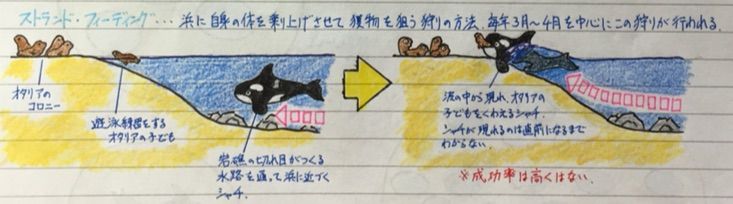 ストランド・フィーディング･･･浜に自身の体を乗り上げさせて獲物を狙う狩りの方法、毎年3月〜4月を中心にこの狩りが行われる。
オタリアの
コロニー
遊泳練習をする
オタリアの子ども
岩礁の切れ目がつくる
水路を通って浜に近づく
シャチ。
波の中から現れ、オタリアの
子どもをくわえるシャチ。
シャチが現れるのは直前になるまで
わからない。
※成功率は高くはない。